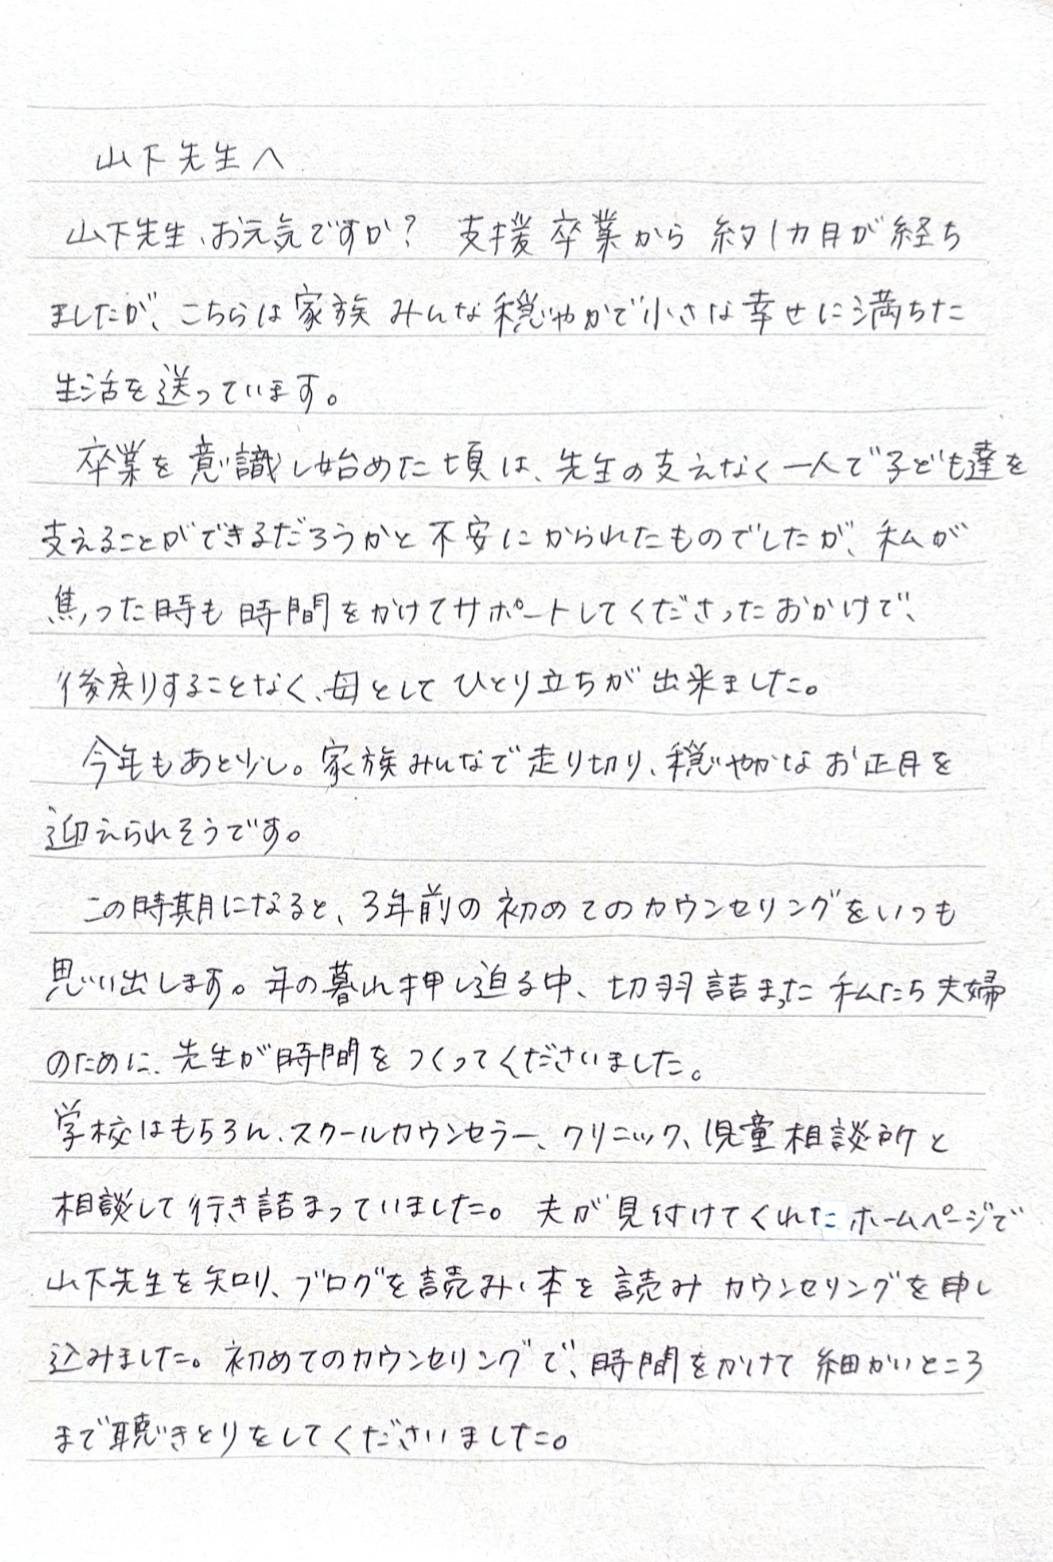 山下先生へ
山下先生、お元気ですか? 支援卒業から約1カ月が経ち
ましたが、こちらは家族みんな穏やかで小さな幸せに満ちた
生活を送っています。
卒業を意識し始めた頃は、先生の支えなく一人で子ども達を
支えることができるだろうかと不安にかられたものでしたが、私が
焦った時も時間をかけてサポートしてくださったおかけで、
後戻りすることなく、母としてひとり立ちが出来ました。
今年もあと少し。家族みんなで走り切り、穏やかなお正月を
迎えられそうです。
この時期になると、3年前の初めてのカウンセリングをいつも
思い出します。年の暮れ押し迫る中、切羽詰まった私たち夫婦
のために、先生が時間をつくってくださいました。
学校はもちろん、スクールカウンセラー、クリニック、児童相談所と
相談して行き詰まっていました。夫が見付けてくれたホームページで
山下先生を知り、ブログを読み、本を読みカウンセリングを申し
込みました。初めてのカウンセリングで、時間をかけて細かいところ
まで聴きとりをしてくださいました。